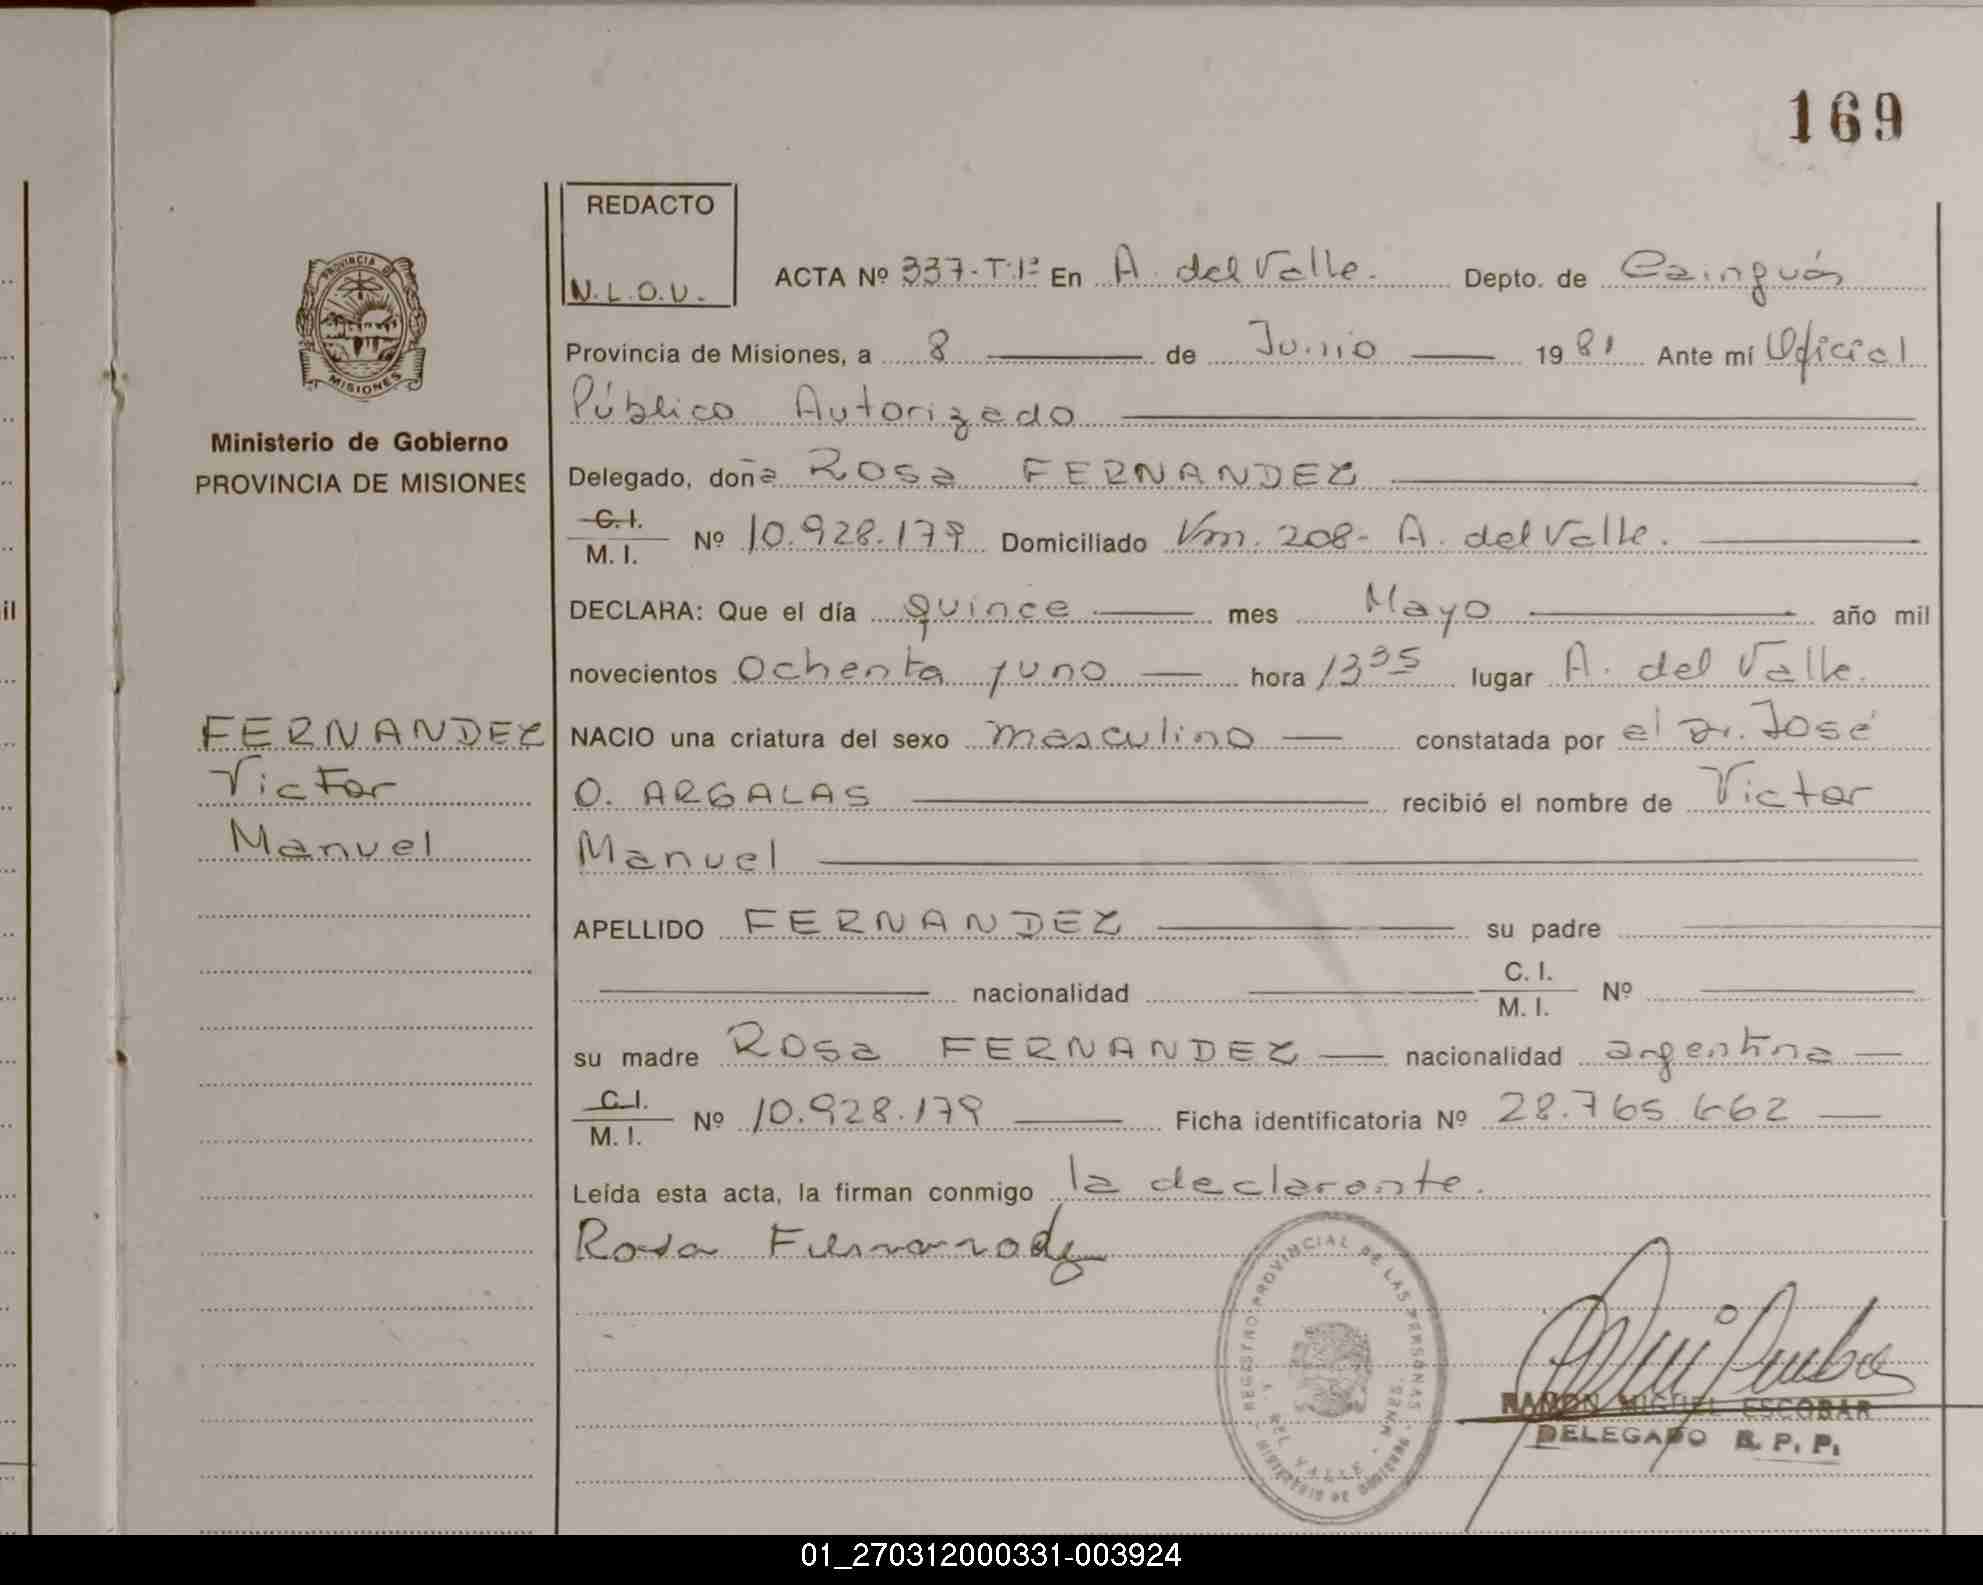 169
REDACTO
N.L.O.V.
PROVINCIA DE
MISIONES
Ministerio de Gobierno
PROVINCIA DE MISIONES
ACTA Nº 337-T:1º En A. del Valle. Depto. de Cainguás
Provincia de Misiones, a 8 de Junio 1981 Ante mí Oficial
Público Autorizado
Delegado, doña Rosa FERNANDEZ
C.I.
M. I. Nº 10.928.179 Domiciliado Km. 208- A. del Valle.
DECLARA: Que el día quince mes Mayo año mil
novecientos Ochenta y uno hora 13 35 lugar A. del Valle.
FERNANDEZ
Victor
Manuel
NACIO una criatura del sexo masculino constatada por el Dr. José
O. ARGALAS recibió el nombre de Victor
Manuel
APELLIDO FERNANDEZ su padre
nacionalidad C. I. Nº
M. I.
su madre Rosa FERNANDEZ nacionalidad argentina
C.I.
M. I. Nº 10.928.179 Ficha identificatoria Nº 28.765.662
Leída esta acta, la firman conmigo la declarante.
Rosa Fernandez
REGISTRO PROVINCIAL DE LAS PERSONAS
DEL VALLE
RAMON MIGUEL ESCOBAR
DELEGADO R. P. P.
il
01_270312000331-003924